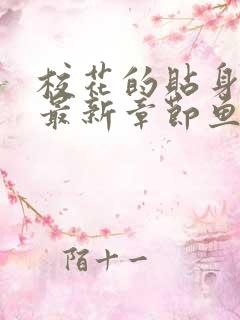 校花的贴身
最新章节鱼
陌十一